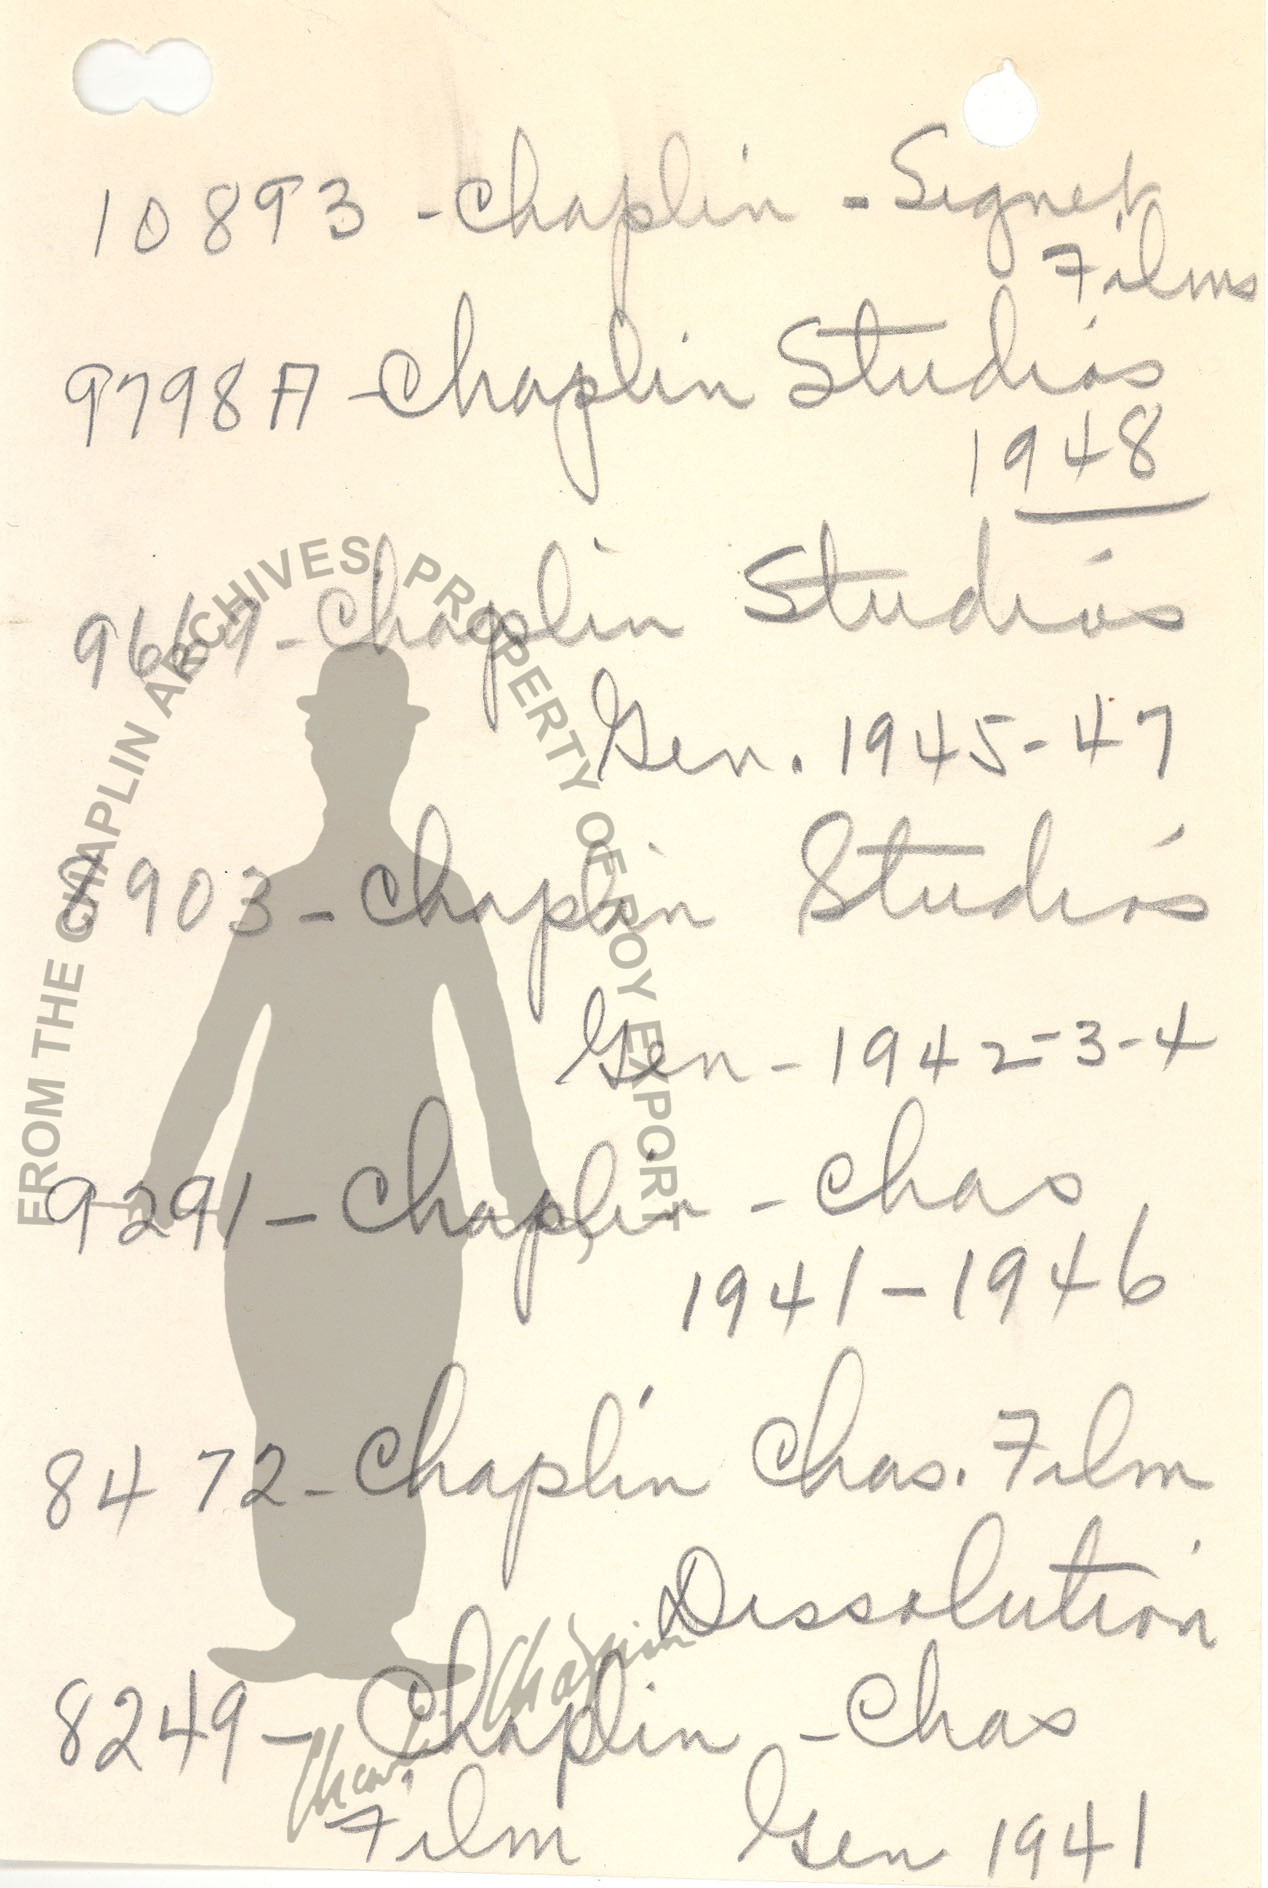 10893 - Chaplin - Signet
Films
9798A - Chaplin Studios
1948
9669 - Chaplin Studios
Gen. 1945-47
8903 - Chaplin Studios
Gen - 1942-3-4
9291 - Chaplin - Chas
1941 - 1946
8472 - Chaplin Chas. Film
Dissolution
8249 - Chaplin - Chas
Film Gen 1941
FROM THE CHAPLIN ARCHIVES, PROPERTY OF ROY EXPORT
Charlie Chaplin